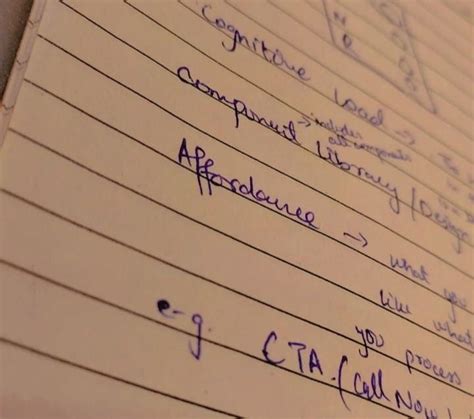 Cognitive Load →
→ includes all components
Component Library / Design
Affordance → what you
like what
you process
e-g. CTA. (Call Now